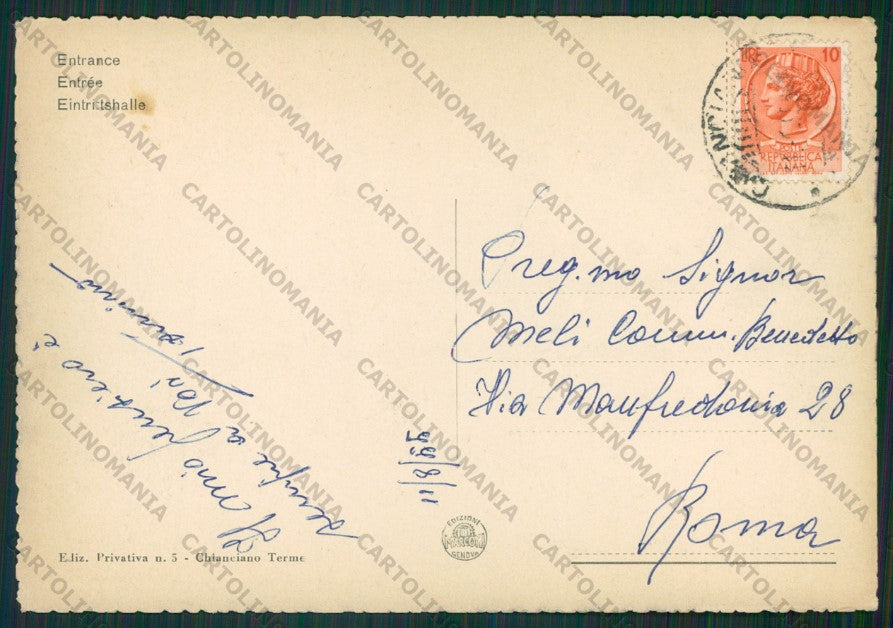 Entrance
Entrée
Eintrittshalle
LIRE 10
POSTE
REPUBBLICA
ITALIANA
Il mio pensiero è
sempre a Voi
11/8/55
Preg.mo Signor
Meli Comm. Benedetto
Via Manfredonia 28
Roma
Ediz. Privativa n. 5 - Chianciano Terme
EDIZIONI
GENOVA
CARTOLINOMANIA